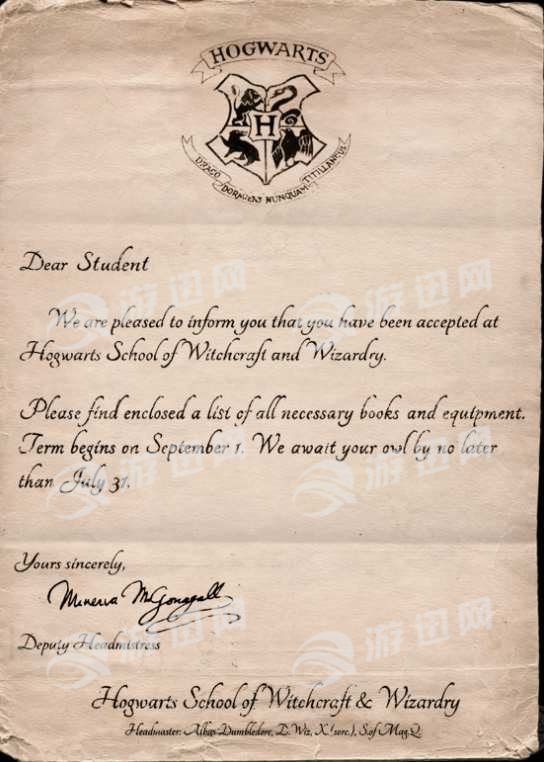 HOGWARTS
H
DRACO DORMIENS NUNQUAM TITILLANDUS
Dear Student
We are pleased to inform you that you have been accepted at
Hogwarts School of Witchcraft and Wizardry.
Please find enclosed a list of all necessary books and equipment.
Term begins on September 1. We await your owl by no later
than July 31.
Yours sincerely,
Minerva McGonagall
Deputy Headmistress
Hogwarts School of Witchcraft & Wizardry
Headmaster: Albus Dumbledore, D.Wiz, X (sorc.), S.of Mag.Q
游迅网
游迅网
游迅网
游迅网
游迅网
游迅网